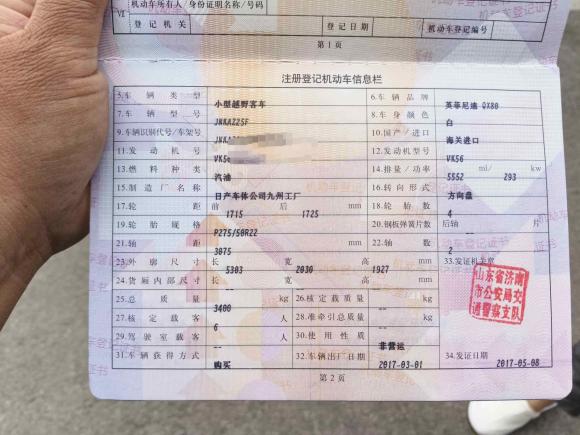 机动车所有人/身份证明名称/号码
VI 登记机关 登记日期 机动车登记编号
第1页
注册登记机动车信息栏
5.车辆类型 小型越野客车 6.车辆品牌 英菲尼迪 QX80
7.车辆型号 JNKAZZ5F 8.车身颜色 白
9.车辆识别代号/车架号 10.国产/进口 海关进口
11.发动机号 12.发动机型号 VK56
13.燃料种类 汽油 14.排量/功率 5552 ml/ 293 kw
15.制造厂名称 日产车体公司九州工厂 16.转向形式 方向盘
17.轮距 前 1715 后 1725 mm 18.轮胎数 4
19.轮胎规格 P275/50R22 20.钢板弹簧片数 后轴 片
21.轴距 3075 mm 22.轴数 2
23.外廓尺寸 长 5303 宽 2030 高 1927 mm 33.发证机关章
24.货厢内部尺寸 长 宽 高 mm
25.总质量 3400 kg 26.核定载质量 kg
27.核定载客 6 人 28.准牵引总质量 kg
29.驾驶室载客 人 30.使用性质 非营运
31.车辆获得方式 购买 32.车辆出厂日期 2017-03-01 34.发证日期 2017-05-08
山东省济南
市公安局交
通警察支队
第2页